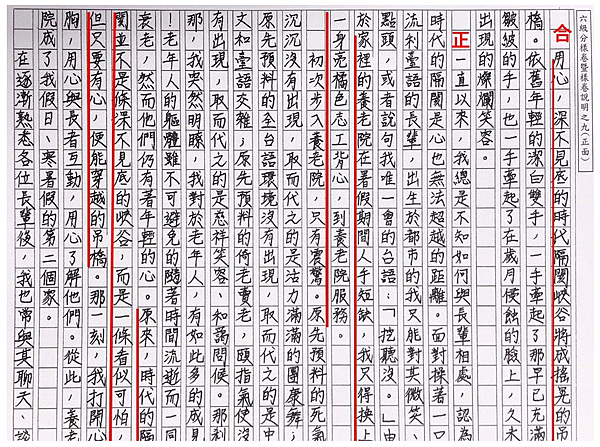 六級分樣卷暨樣卷說明之九(正面)
合 用心,深不見底的時代隔閡峽谷將成搖晃的吊
橋。依舊年輕的潔白雙手,一手牽起了那早已充滿
皺紋的手,也一手牽起了在歲月侵蝕的臉上,久未
出現的燦爛笑容。
正 一直以來,我總是不知如何與長輩相處,認為
時代的隔閡是心也無法超越的距離。面對操著一口
流利臺語的長輩,出生於都市的我只能對其微笑、
點頭,或者說句我唯一會的台語:「挖聽沒。」由
於家裡的養老院在暑假期間人手短缺,我只得換上
一身亮橘色志工背心,到養老院服務。
初次步入養老院,只有震驚。原先預料的死氣
沉沉沒有出現,取而代之的是活力滿滿的團康舞;
原先預料的全台語環境沒有出現,取而代之的是中
文和臺語交雜;原先預料的倚老賣老,頤指氣使
出現,取而代之的是慈祥笑容、和藹問候。那剎
那,我突然明瞭,我對於老年人,有如此多的成見
!老年人的軀體雖不可避免的隨著時間流逝而一同
衰老,然而他們仍有著年輕的心。原來,時代的隔
閡並不是條深不見底的峽谷,而是一條看似可怕,
但只要有心,便能穿越的吊橋。那一刻,我打開心
胸,用心與長者互動,用心了解他們。從此,養老
院成了我假日、寒暑假的第二個家。
在逐漸熟悉各位長輩後,我也常與其聊天、